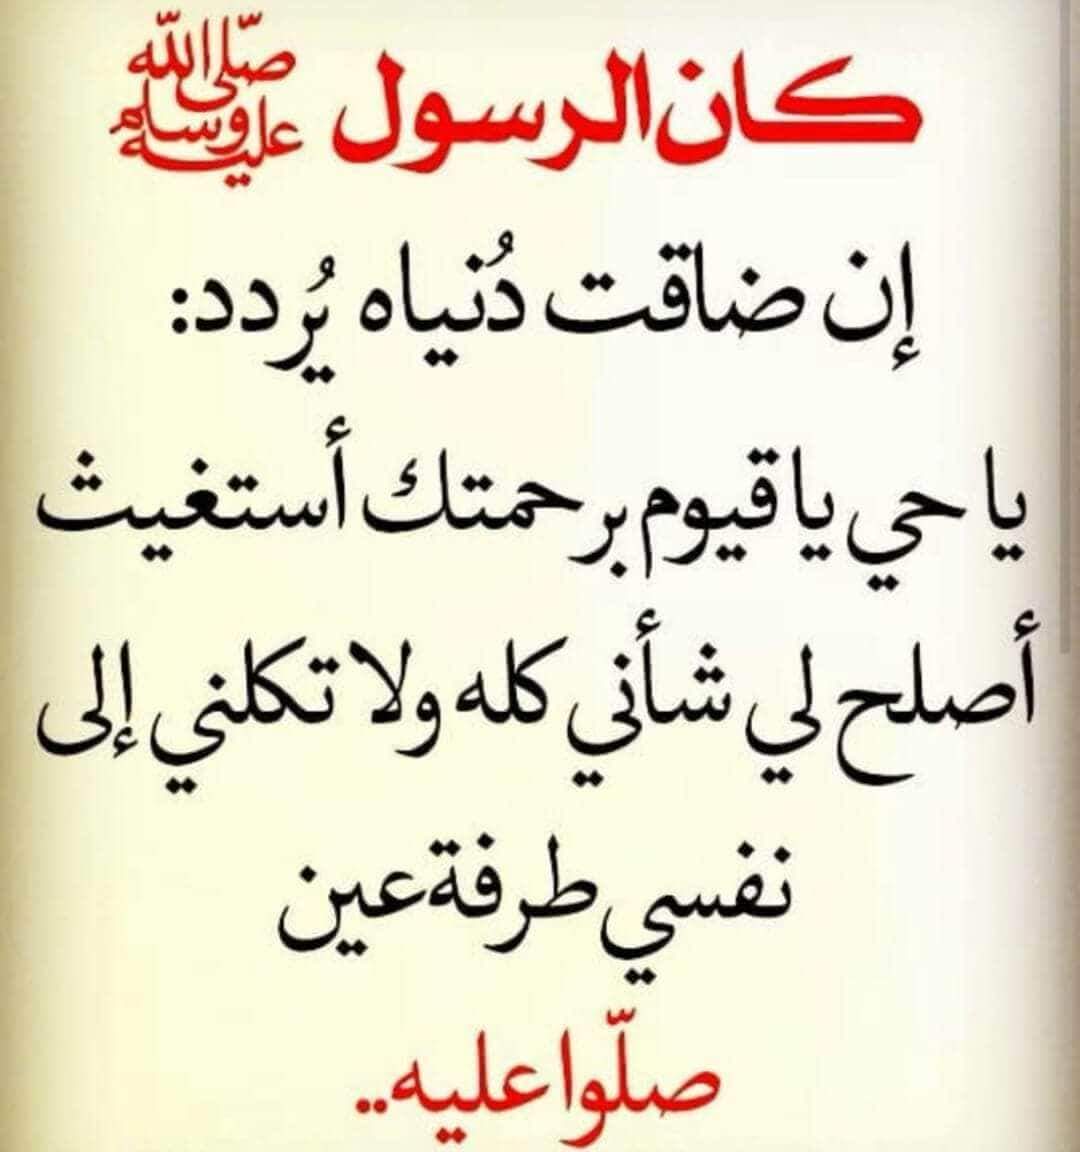 كان الرسول صلى الله عليه وسلم
إن ضاقت دُنياه يُردد:
يا حي يا قيوم برحمتك أستغيث
أصلح لي شأني كله ولا تكلني إلى
نفسي طرفة عين
صلّوا عليه..